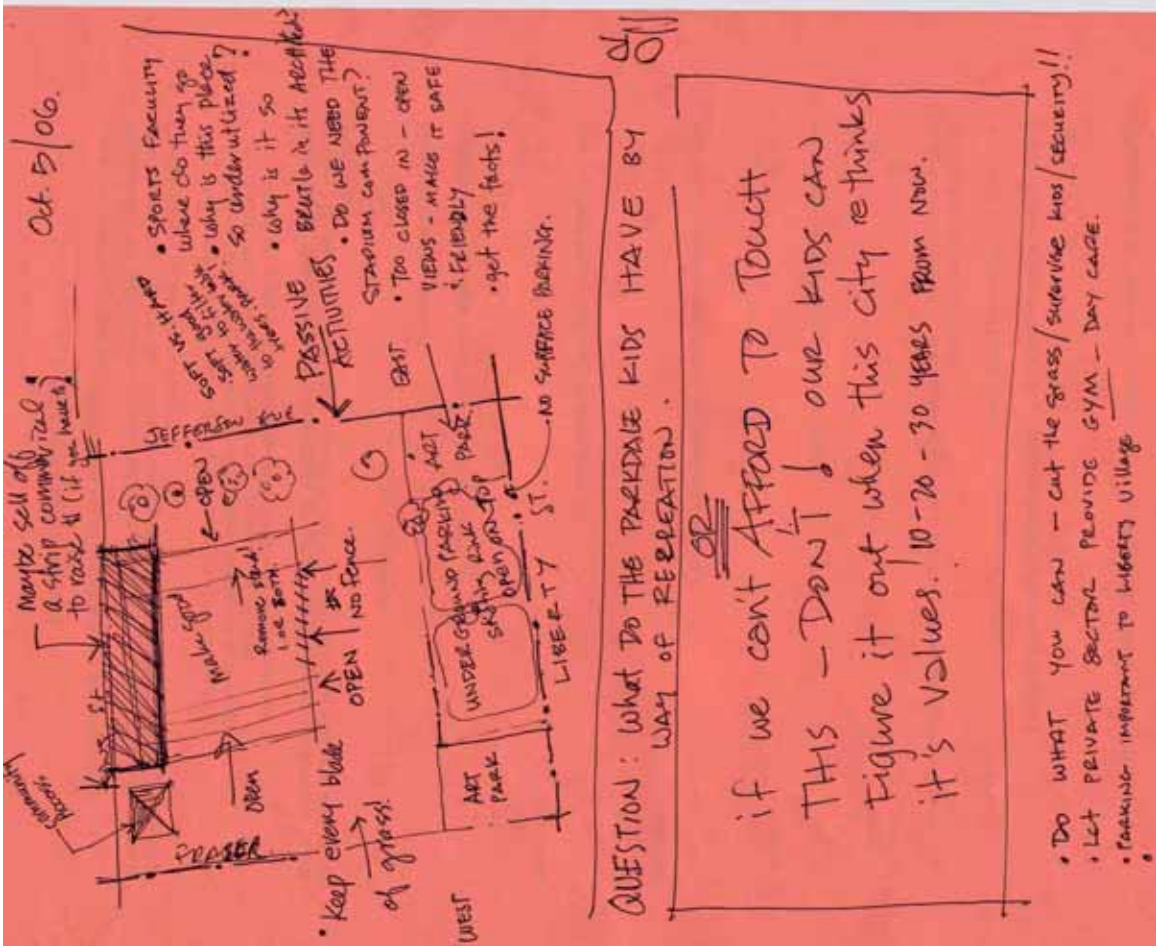 Oct. 5/06.
Maybe sell off
a strip commercial
to raise $ (if you have to)
Community
Access
St.
JEFFERSON AVE
FRASER
Make Good
Remove stand
1 or BOTH.
OPEN
Open
OPEN
NO Fence.
• Keep every blade
of grass!
WEST
EAST
PASSIVE
ACTIVITIES
SOFT VS. HARD
• SPORTS FACILITY
where do they go
• Why is this place
so underutilized?
• Why is it so
BRUTLE in its ARCHITED?
• DO WE NEED THE
STADIUM COMPONENT?
• TOO CLOSED IN - OPEN
VIEWS - MAKES IT SAFE
& FRIENDLY
• get the facts!
ART
PARK
UNDERGROUND PARKING
SKATING RINK
OPEN ON TOP
ART
PARK.
LIBERTY ST.
• NO SURFACE PARKING.
QUESTION: WHAT DO THE PARKDALE KIDS HAVE BY
WAY OF RECREATION.
OR
if we can't AFFORD TO TOUCH
THIS - DON'T! OUR KIDS CAN
Figure it out when this city rethinks
it's values. 10-20-30 YEARS FROM NOW.
• DO WHAT YOU CAN - cut the grass/supervise kids/security!!
• Let PRIVATE SECTOR PROVIDE GYM - DAY CARE.
• PARKING IMPORTANT TO LIBERTY Village